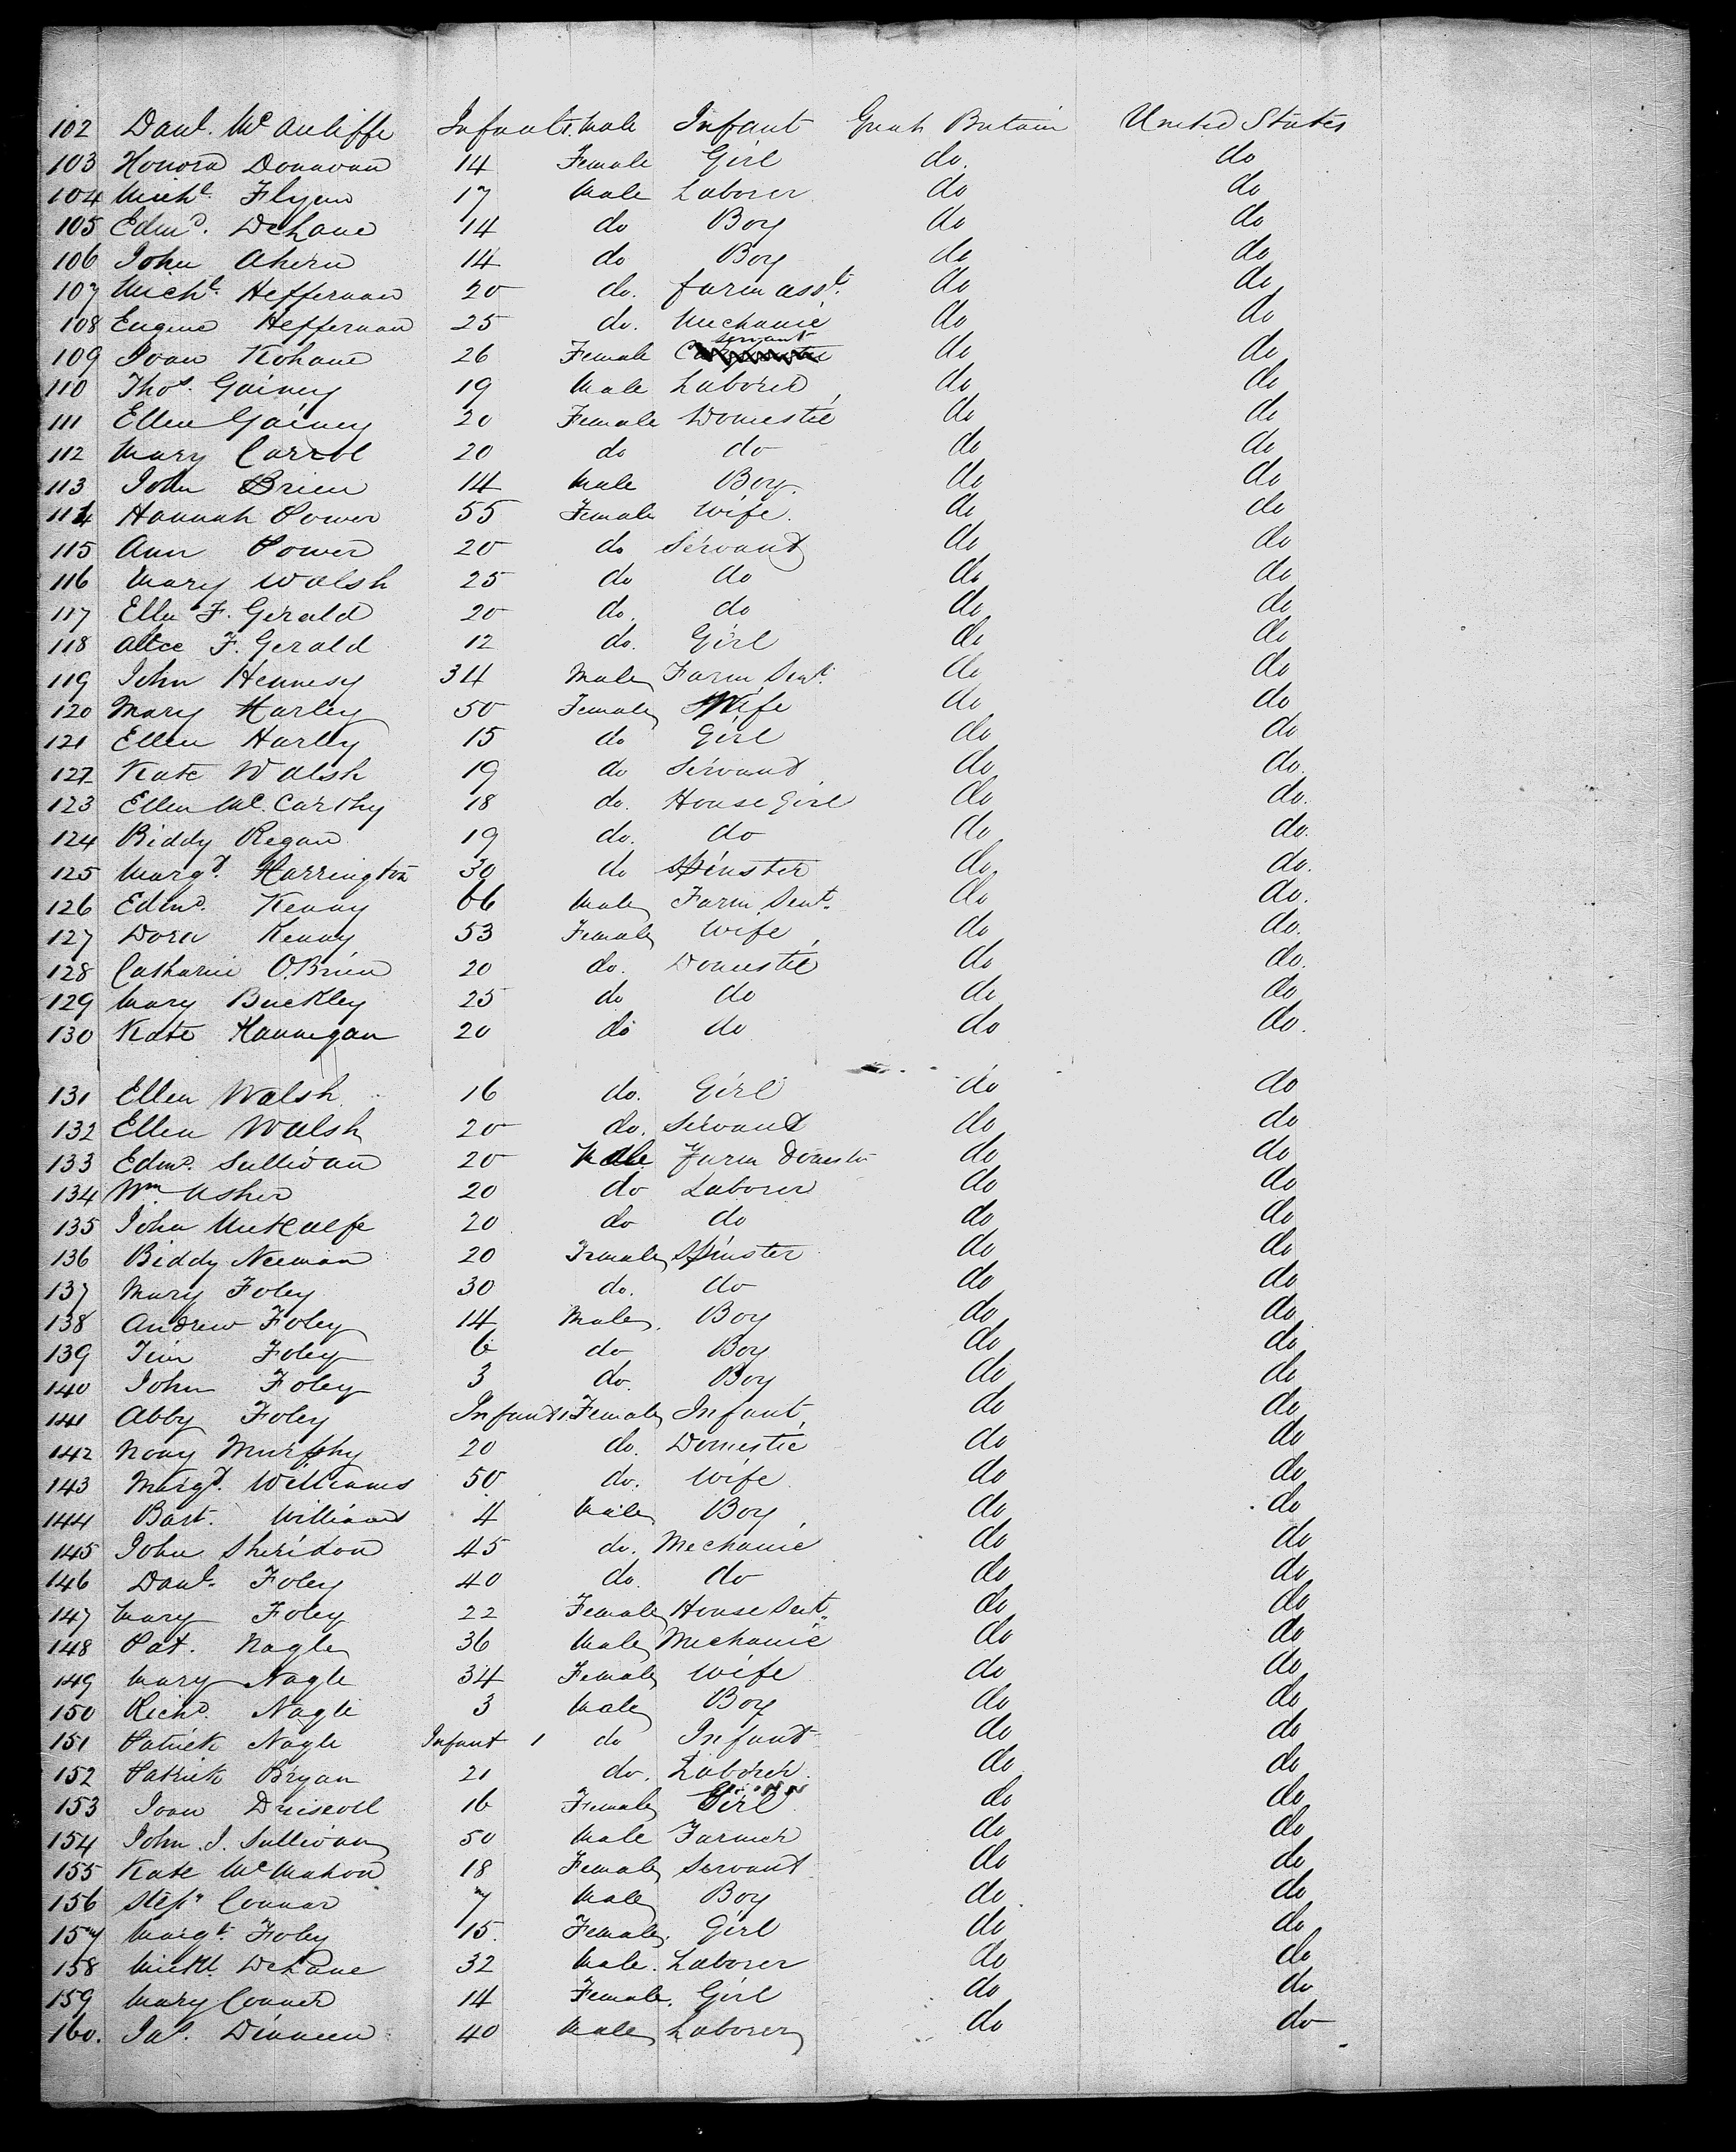 102 Danl. McAuliffe Infant 1. Male Infant Great Britain United States
103 Honora Donavan 14 Female Girl do. do
104 Michl. Flynn 17 Male Laborer do do
105 Edmd. DeLane 14 do Boy do do
106 John Ahern 14 do Boy do do
107 Michl. Heffernan 20 do. farm asst. do do
108 Eugene Heffernan 25 do. Mechanic do do
109 Joan Kohane 26 Female servant do do
110 Thos. Gainey 19 Male Laborer do do
111 Ellen Gainey 20 Female Domestic do do
112 Mary Carrol 20 do do do do
113 John Brien 14 Male Boy. do do
114 Hannah Power 55 Female Wife. do do
115 Ann Power 20 do Servant do do
116 Mary Walsh 25 do do do do
117 Ellen F. Gerald 20 do. do do do
118 Alice F. Gerald 12 do. Girl do do
119 John Hennesy 34 Male Farm Sert. do do
120 Mary Harley 50 Female Wife do do
121 Ellen Harley 15 do Girl do do
122 Kate Walsh 19 do Servant do do.
123 Ellen McCarthy 18 do. House Girl do do.
124 Biddy Regan 19 do. do do do.
125 Margt. Harrington 30 do Spinster do do.
126 Edmd. Kenny 66 Male Farm Sert. do do.
127 Dora Kenny 53 Female Wife do do.
128 Catharine O.Brien 20 do. Domestic do do.
129 Mary Buckley 25 do do do do
130 Kate Hannegan 20 do do do do.
131 Ellen Walsh 16 do. Girl do do
132 Ellen Walsh 20 do. Servant do do
133 Edmd. Sullivan 20 Male Farm Domestic do do
134 Wm. Asher 20 do Laborer do do
135 John Metcalfe 20 do do do do
136 Biddy Neenan 20 Female Spinster do do
137 Mary Foley 30 do. do do do
138 Andrew Foley 14 Male. Boy do do
139 Tim Foley 6 do Boy do do
140 John Foley 3 do. Boy do do
141 Abby Foley Infant 1 Female Infant do do
142 Nony Murphy 20 do. Domestic do do
143 Margt. Williams 50 do. Wife do do
144 Bart. Williams 4 Male Boy do do
145 John Sheridon 45 do. Mechanic do do
146 Danl. Foley 40 do. do do do
147 Mary Foley 22 Female House Sert. do do
148 Pat. Nagle 36 Male Mechanic do do
149 Mary Nagle 34 Female Wife do do
150 Richd. Nagle 3 Male Boy do do
151 Patrick Nagle Infant 1 do Infant do do
152 Patrick Bryan 21 do. Laborer. do do
153 Joan Driscoll 16 Female Girl do do
154 John J. Sullivan 50 Male Farmer do do
155 Kate McMahon 18 Female Servant do do
156 Stepn Connor 7 Male Boy do do
157 Margt. Foley 15. Female. Girl do do
158 Michl. DeLane 32 Male. Laborer do do
159 Mary Conner 14 Female. Girl do do
160. Jas. Dinneen 40 Male Laborer do do